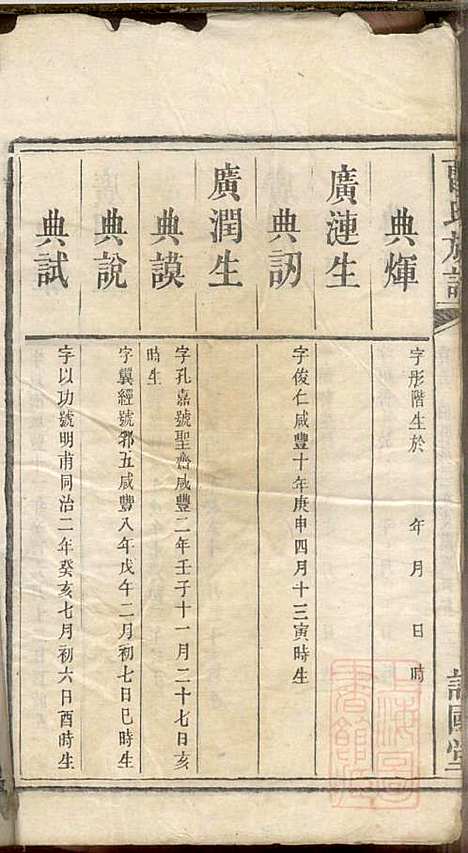 氏族譜
詒國堂
典煇
字彤階生於 年 月 日 時
廣漣生
典訒
字俊仁咸豐十年庚申四月十三寅時生
廣潤生
典謨
字孔嘉號聖齋咸豐二年壬子十一月二十七日亥
時生
典說
字翼經號郛五咸豐八年戊午二月初七日巳時生
典試
字以功號明甫同治二年癸亥七月初六日酉時生